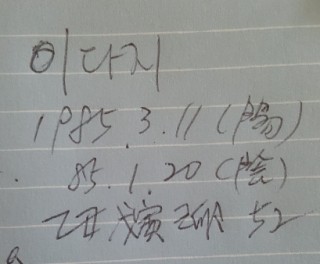 이다지
1985.3.11(陽)
85.1.20(陰)
乙丑 戊寅 己卯 52